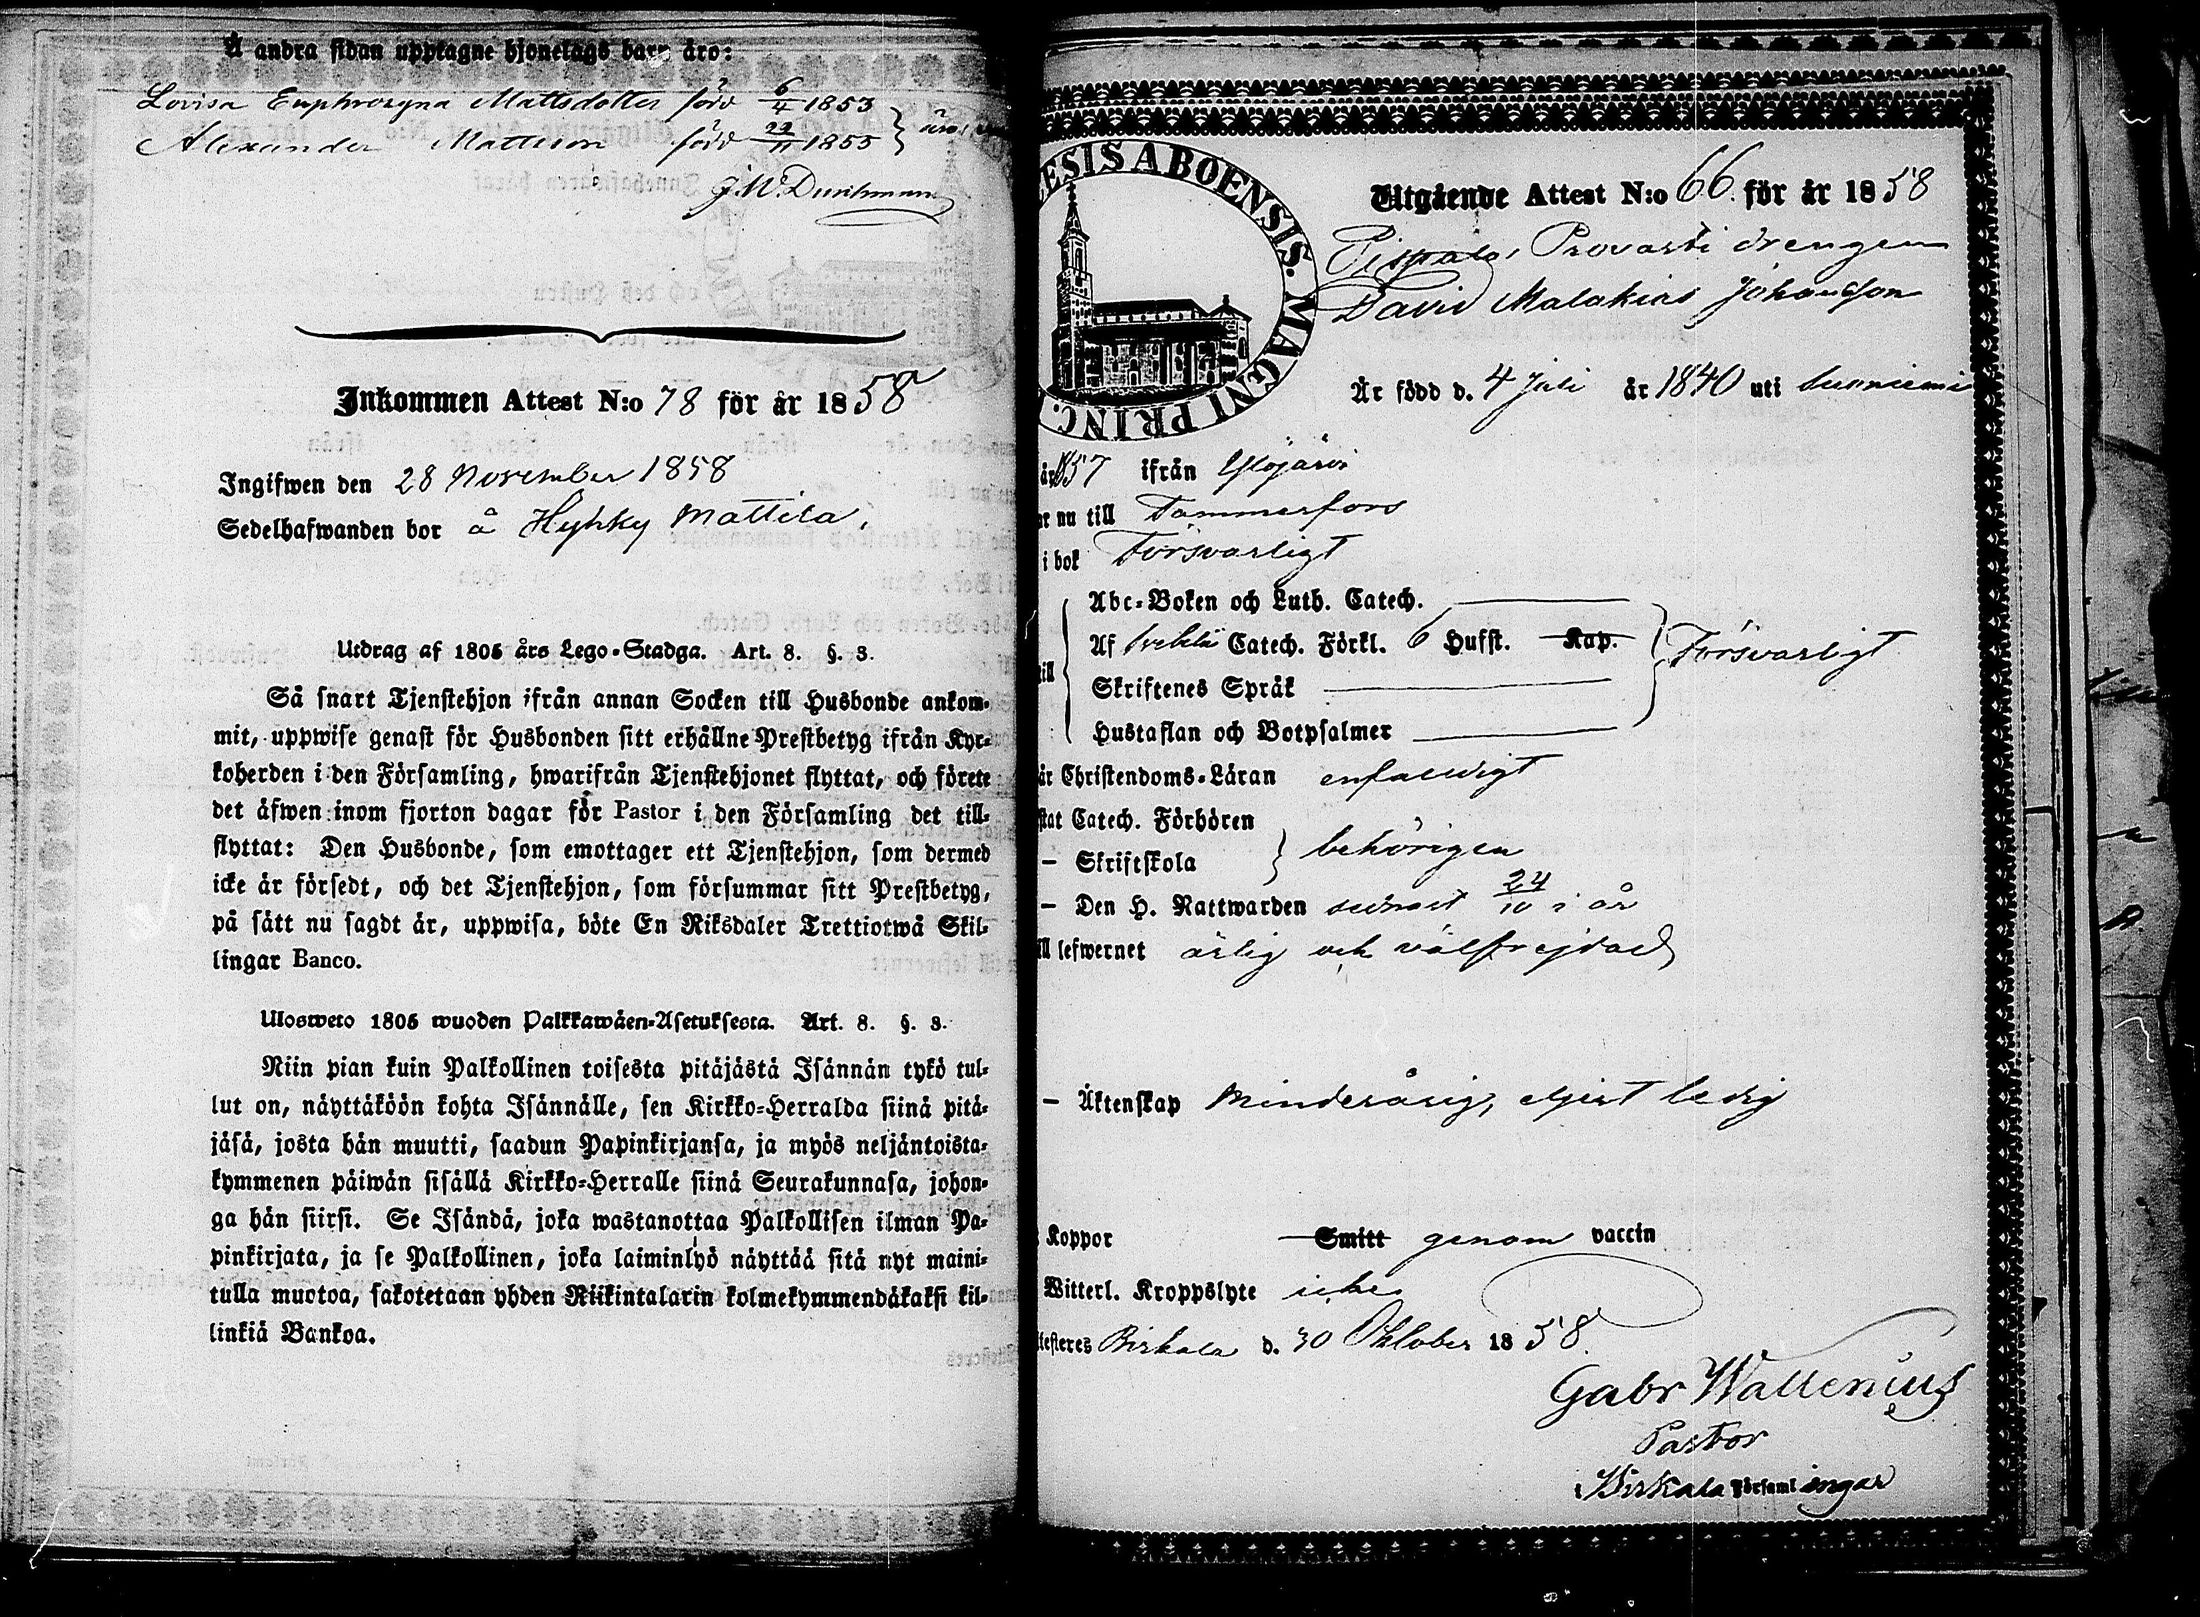 Å andra sidan upptagne hjonelags barn äro:
Lovisa Euphrosyna Mattsdotter född 6/4 1853
Alexander Mattsson född 22/11 1855 } äro
Inkommen Attest N:o 78 för år 1858
Ingifwen den 28 November 1858
Sedelhafwanden bor å Hyhky Mattila.
Utdrag af 1805 års Lego-Stadga. Art. 8. §. 3.
Så snart Tjenstehjon ifrån annan Socken till Husbonde ankom-
mit, uppwise genast för Husbonden sitt erhållne Prestbetyg ifrån Kyr-
koherden i den Församling, hwarifrån Tjenstehjonet flyttat, och förete
det äfwen inom fjorton dagar för Pastor i den Församling det till-
flyttat: Den Husbonde, som emottager ett Tjenstehjon, som dermed
icke är försedt, och det Tjenstehjon, som försummar sitt Prestbetyg,
på sätt nu sagdt är, uppwisa, böte En Riksdaler Trettiotwå Skil-
lingar Banco.
Ulosweto 1805 wuoden Palkkawäen-Asetuksesta. Art. 8. §. 3.
Niin pian kuin Palkollinen toisesta pitäjästä Isännän tykö tul-
lut on, näyttäköön kohta Isännälle, sen Kirkko-Herralda siinä pitä-
jäsä, josta hän muutti, saadun Papinkirjansa, ja myös neljäntoista-
kymmenen päiwän sisällä Kirkko-Herralle siinä Seurakunnasa, johon-
ga hän siirsi. Se Isändä, joka wastanottaa Palkollisen ilman Pa-
pinkirjata, ja se Palkollinen, joka laiminlyö näyttää sitä nyt maini-
tulla muotoa, sakotetaan yhden Riikintalarin kolmekymmendäkaksi kil-
linkiä Bankoa.
ESIS ABOENSIS. MAGNI PRINC.
Utgående Attest N:o 66. för år 1858
Pispala, Provasti drengen
David Malakias Johansson
Är född d. 4 Juli år 1840 uti Suoniemi
år 1857 ifrån Ylöjärvi
nu till Tammerfors
i bok Försvarligt
Abc-Boken och Luth. Catech.
Af Catech. Förkl. 6 Hufst. Kap. Försvarligt
till
Skriftenes Språk
Hustaflan och Botpsalmer
är Christendoms-Läran enfaldigt
Catech. Förhören
— Skriftskola } behörigen
— Den H. Nattwarden sednast 24/10 i år
till lefwernet ärlig och välfrejdad
— Äktenskap Minderårig, eljest ledig
Koppor Smitt genom vaccin
Witterl. Kroppslyte icke
Birkala d. 30 Oktober 1858.
Gabr Wallenius
Pastor
i Birkala Församlingar